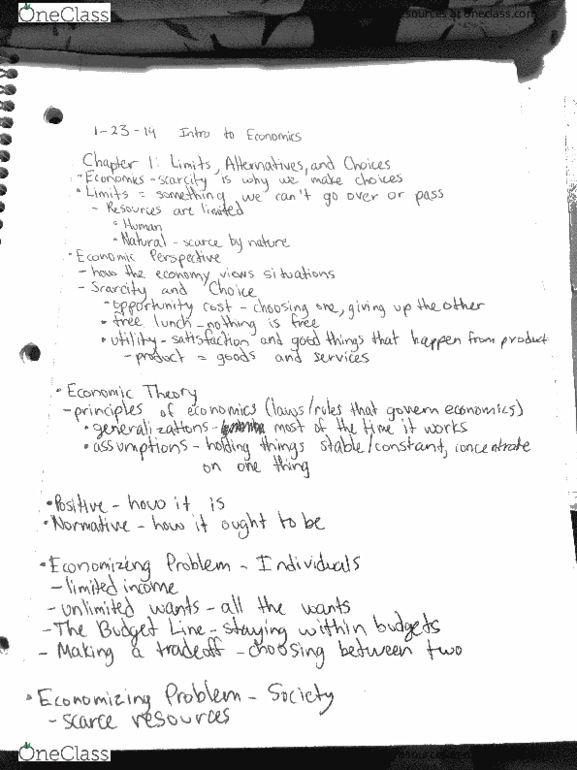 OneClass
sources at oneclass.com
1-23-14 Intro to Economics
Chapter 1: Limits, Alternatives, and Choices
• Economics - scarcity is why we make choices
• Limits = something we can't go over or pass
- Resources are limited
• Human
• Natural - scarce by nature
• Economic Perspective
- how the economy views situations
- Srarcity and Choice
• opportunity cost - choosing one, giving up the other
• free lunch - nothing is free
• utility - satisfaction and good things that happen from product
- product = goods and services
• Economic Theory
- principles of economics (laws/rules that govern economics)
• generalizations - most of the time it works
• assumptions - holding things stable/constant, concentrate
on one thing
• Positive - how it is
• Normative - how it ought to be
• Economizing Problem - Individuals
- limited income
- unlimited wants - all the wants
- The Budget Line - staying within budgets
- Making a tradeoff - choosing between two
• Economizing Problem - Society
- scarce resources
OneClass
sources at oneclass.com